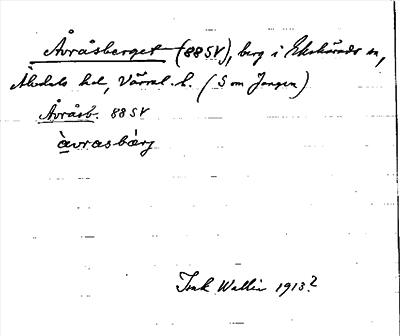 Åvråsberget (88SV), berg i Ekshärads sn,
Älvdals hd, Värml. l. (S om Jangen)
Åvråsb. 88 SV
àvrasbærj
Isak Wallin 1913?